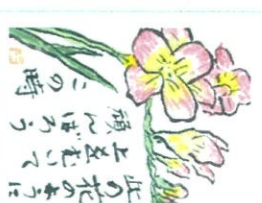 此の花のように
上をむいて
頑んばろう
この時